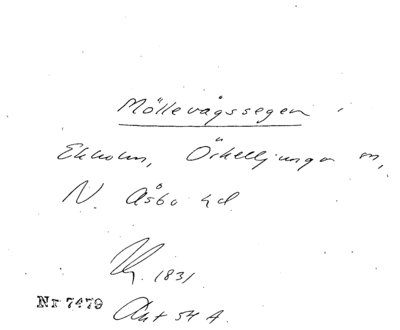 Möllevågssegen
Ekholm, Örkelljunga sn,
N. Åsbo hd
1831
Nr 7479
Ant 54 A.